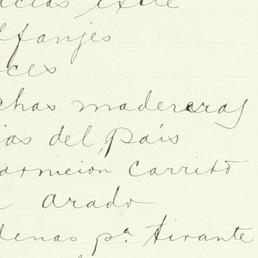 alfanjes
chas madereras
ias del país
armicion carrito
arado
denas pª tirante